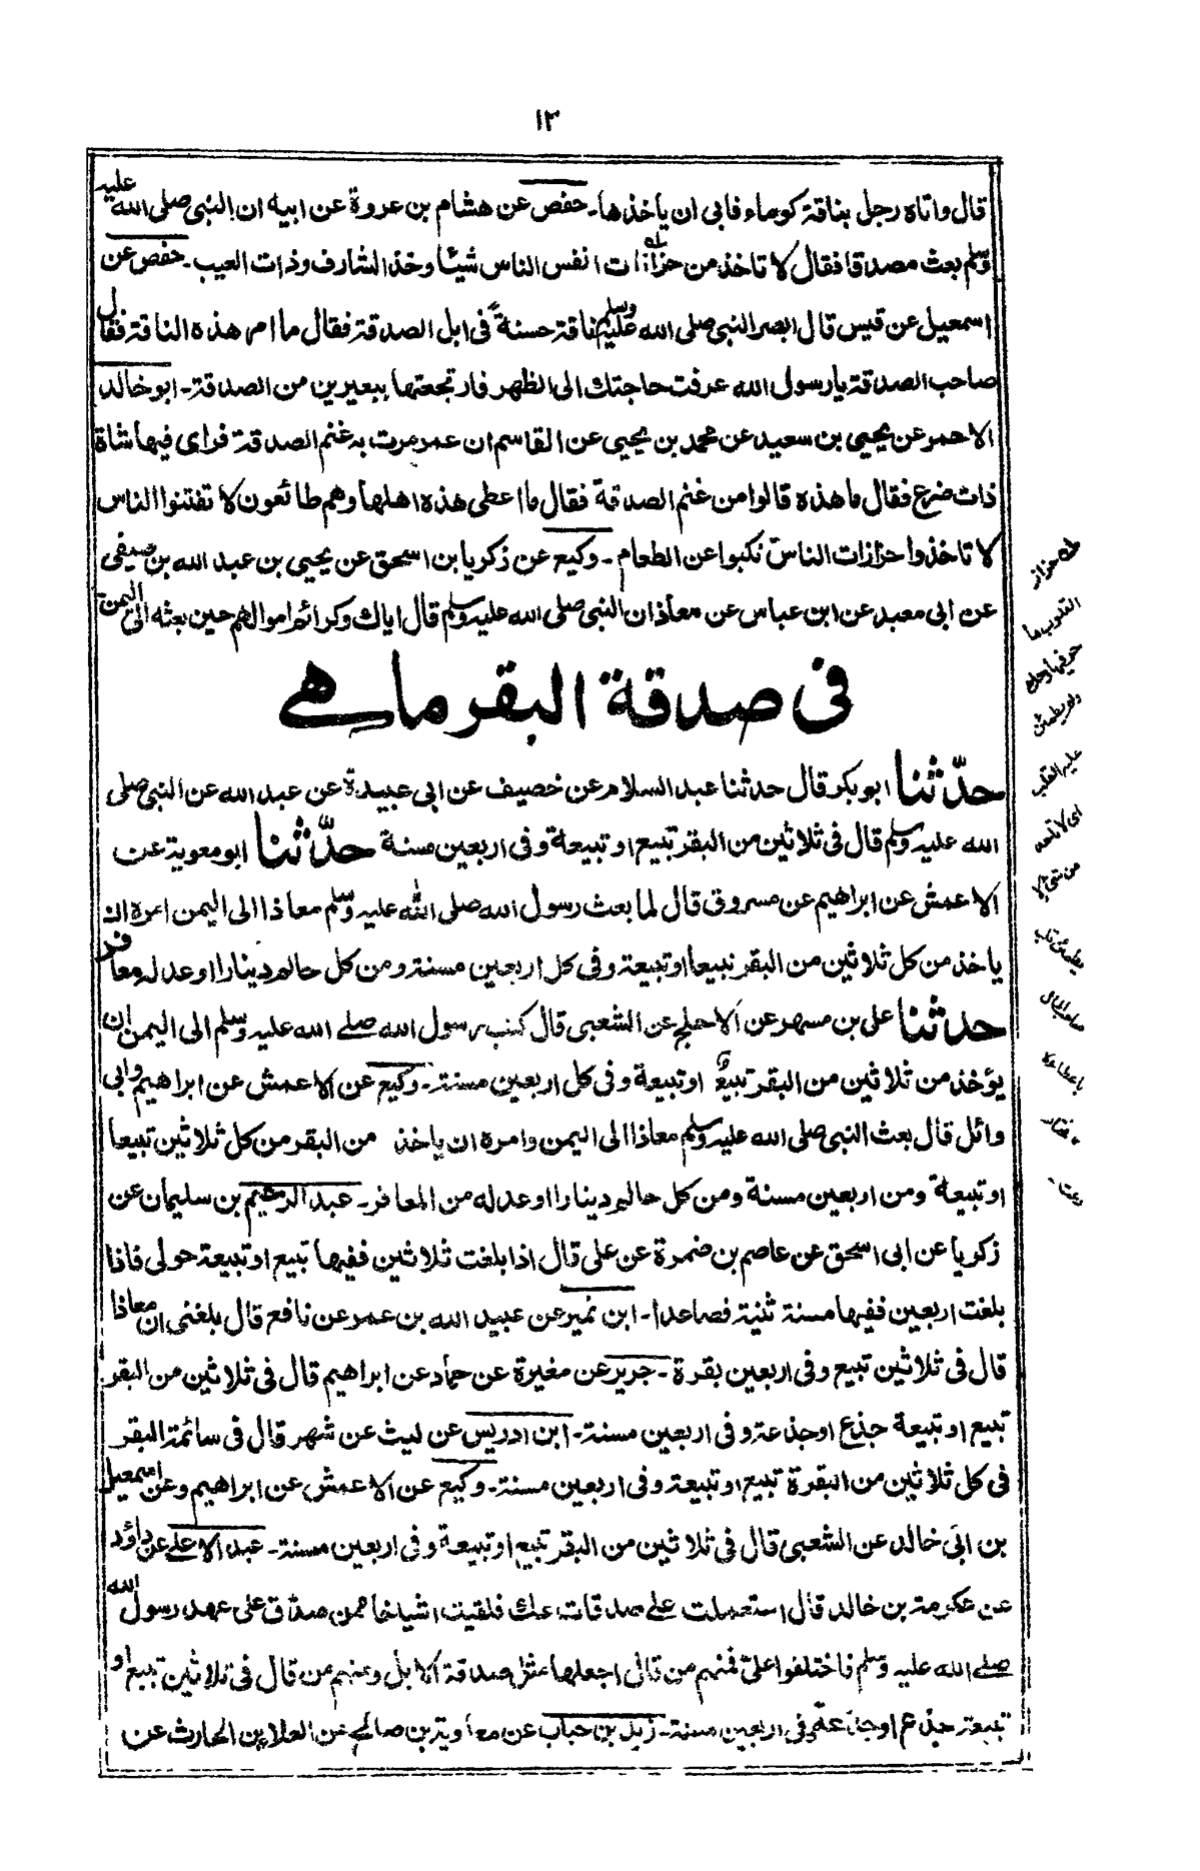 ١٣
قال واتاه رجل بناقة كوماء فابى ان ياخذها۔ حفص عن هشام بن عروة عن ابيه ان النبى صلى الله عليه
وسلم بعث مصدقا فقال لا تاخذ من حزازات انفس الناس شيئا وخذ الشارف وذات العيب۔ حفص عن
اسمعيل عن قيس قال ابصر النبى صلى الله عليه وسلم ناقة حسنة فى ابل الصدقة فقال ما امر هذه الناقة فقال
صاحب الصدقة يا رسول الله عرفت حاجتك الى الظهر فارتجعتها ببعيرين من الصدقة۔ ابو خالد
الاحمر عن يحيى بن سعيد عن محمد بن يحيى عن القاسم ان عمر مرت به غنم الصدقة فراى فيها شاة
ذات ضرع فقال ما هذه قالوا من غنم الصدقة فقال ما اعطى هذه اهلها وهم طائعون لا تفتنوا الناس
لا تاخذوا حزازات الناس نكبوا عن الطعام۔ وكيع عن زكريا بن اسحق عن يحيى بن عبد الله بن صيفى
عن ابى معبد عن ابن عباس عن معاذ ان النبى صلى الله عليه وسلم قال اياك وكرائم اموالهم حين بعثه الى اليمن
فى صدقة البقر ما هي
حدّثنا ابو بكر قال حدثنا عبد السلام عن خصيف عن ابى عبيدة عن عبد الله عن النبى صلى
الله عليه وسلم قال فى ثلاثين من البقر تبيع او تبيعة وفى اربعين مسنة حدّثنا ابو معوية عن
الاعمش عن ابراهيم عن مسروق قال لما بعث رسول الله صلى الله عليه وسلم معاذا الى اليمن امره ان
ياخذ من كل ثلاثين من البقر تبيعا او تبيعة وفى كل اربعين مسنة ومن كل حالم دينارا او عدله معافر
حدثنا على بن مسهر عن الاجلح عن الشعبى قال كتب رسول الله صلے الله عليه وسلم الى اليمن ان
يؤخذ من ثلاثين من البقر تبيع او تبيعة وفى كل اربعين مسنة۔ وكيع عن الاعمش عن ابراهيم وابى
وائل قال بعث النبى صلى الله عليه وسلم معاذا الى اليمن وامره ان ياخذ من البقر من كل ثلاثين تبيعا
او تبيعة ومن اربعين مسنة ومن كل حالم دينارا او عدله من المعافر۔ عبد الرحيم بن سليمان عن
زكريا عن ابى اسحق عن عاصم بن ضمرة عن على قال اذا بلغت ثلاثين ففيها تبيع او تبيعة حولى فاذا
بلغت اربعين ففيها مسنة ثنية فصاعدا۔ ابن نمير عن عبيد الله بن عمر عن نافع قال بلغنى ان معاذا
قال فى ثلاثين تبيع وفى اربعين بقرة۔ جرير عن مغيرة عن حماد عن ابراهيم قال فى ثلاثين من البقر
تبيع او تبيعة جذع او جذعة وفى اربعين مسنة۔ ابن ادريس عن ليث عن شهر قال فى سائمة البقر
فى كل ثلاثين من البقرة تبيع او تبيعة وفى اربعين مسنة۔ وكيع عن الاعمش عن ابراهيم وعن اسمعيل
بن ابى خالد عن الشعبى قال فى ثلاثين من البقر تبيع او تبيعة وفى اربعين مسنة۔ عبد الاعلے عن داؤد
عن عكرمة بن خالد قال استعملت علے صدقات عك فلقيت اشياخا ممن صدق على عهد رسول الله
صلے الله عليه وسلم فاختلفوا علىّ فمنهم من قال اجعلها مثل صدقة الابل ومنهم من قال فى ثلاثين تبيع او
تبيعة جذع او جذعة وفى اربعين مسنة۔ زيد بن حباب عن معاوية بن صالح عن العلا بن الحارث عن
حزاز
القلوب ما
عليه القلب